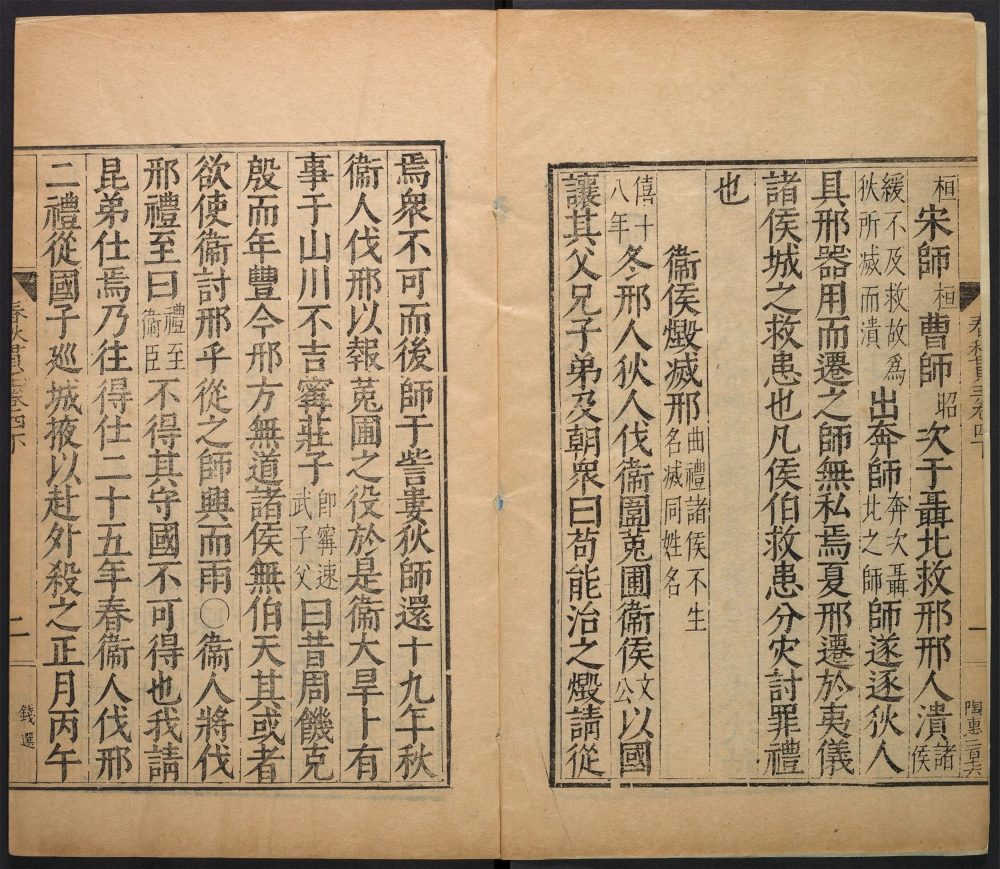 一
陶惠三百六
桓宋師桓曹師昭次于聶北救邢邢人潰諸侯
緩不及救故爲狄所滅而潰出奔師奔次聶北之師師遂逐狄人
具邢器用而遷之師無私焉夏邢遷於夷儀
諸侯城之救患也凡侯伯救患分灾討罪禮
也
衞侯燬滅邢曲禮諸侯不生名滅同姓名
僖十八年冬邢人狄人伐衞圍菟圃衞侯文公以國
讓其父兄子弟及朝衆曰苟能治之燬請從
焉衆不可而後師于訾婁狄師還十九年秋
衞人伐邢以報菟圃之役於是衞大旱卜有
事于山川不吉甯莊子即甯速武子父曰昔周饑克
殷而年豐今邢方無道諸侯無伯天其或者
欲使衞討邢乎從之師興而雨〇衞人將伐
邢禮至曰禮至衞臣不得其守國不可得也我請
昆弟仕焉乃往得仕二十五年春衞人伐邢
二禮從國子巡城掖以赴外殺之正月丙午
春秋貫玉卷四下
二
錢選